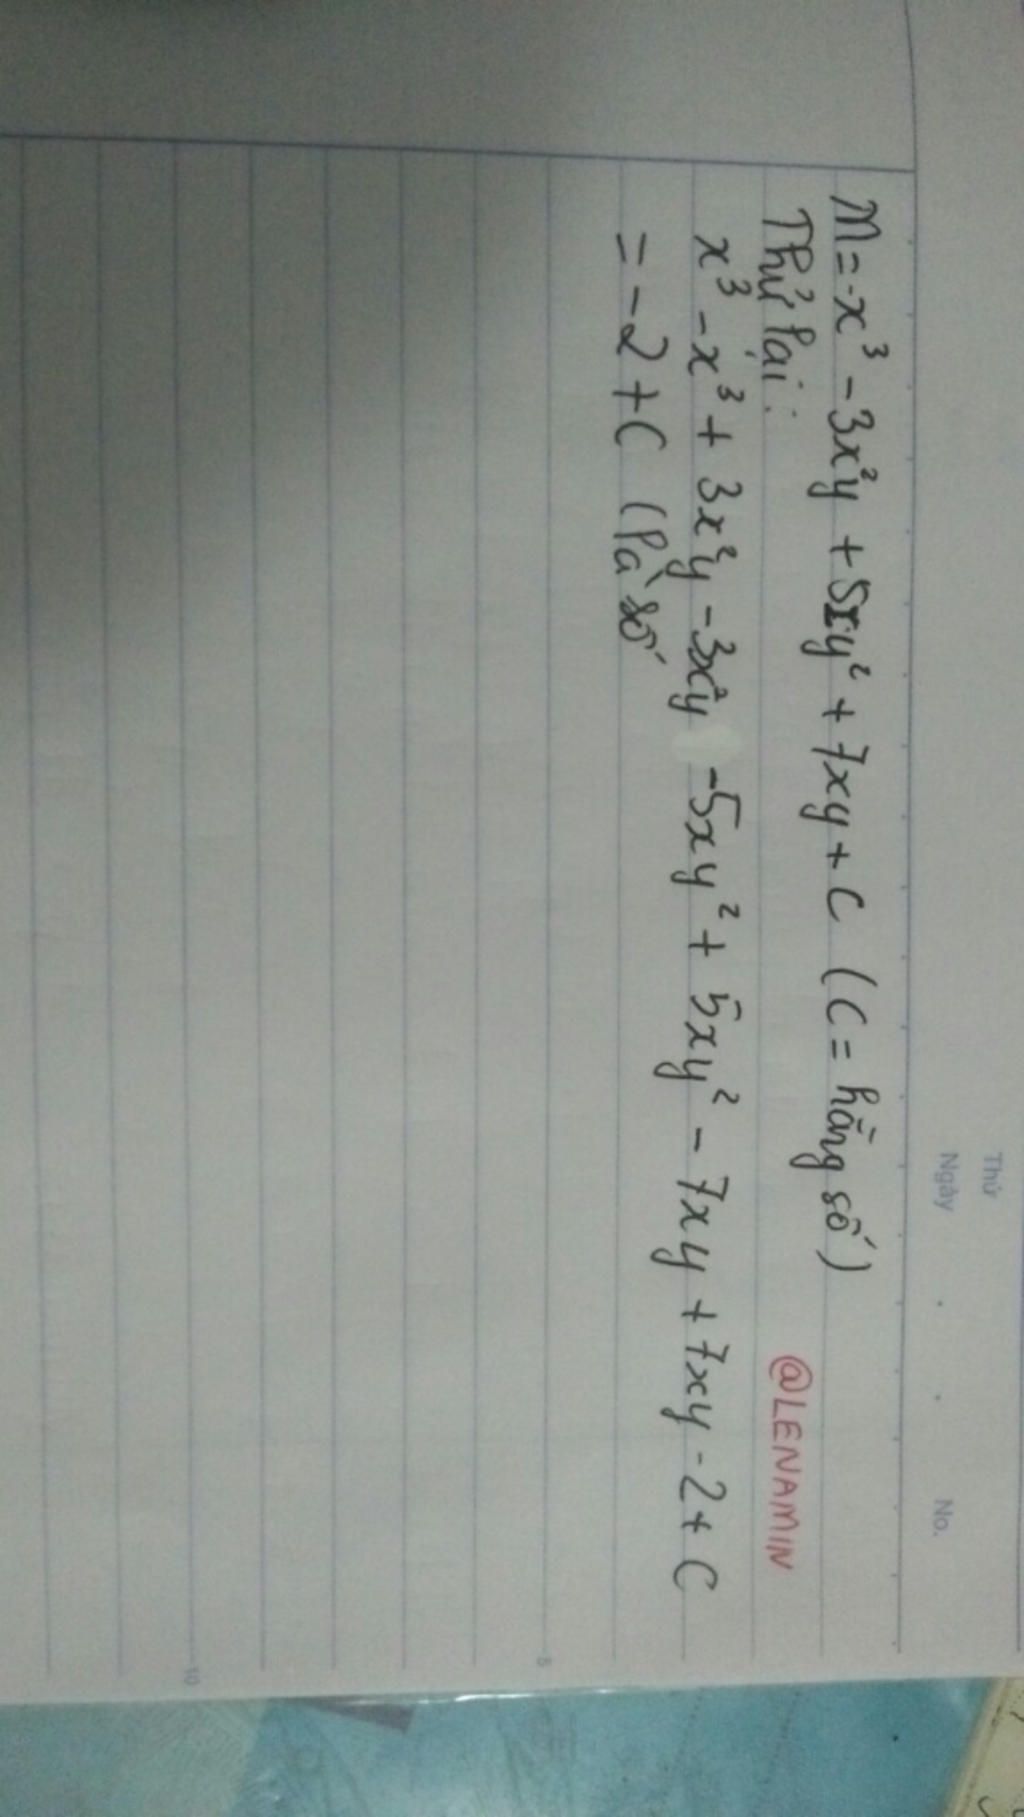 Thứ
Ngày . . No.
M = -x³ - 3x²y + 5xy² + 7xy + C (C = hằng số)
Thử lại: @LENAMIN
x³ - x³ + 3x²y - 3x²y - 5xy² + 5xy² - 7xy + 7xy - 2 + C
= -2 + C (là số
5
10